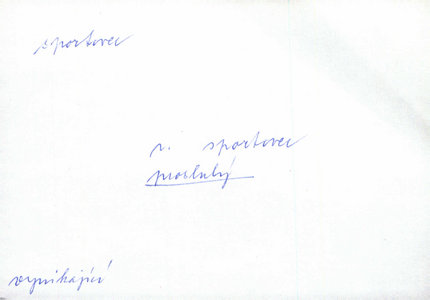 sportovec
v. sportovec
proslulý
vynikající